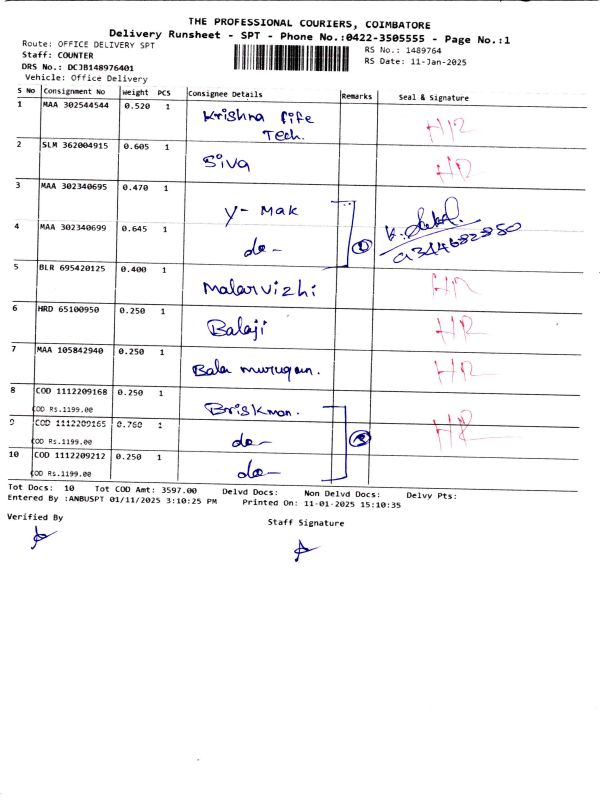 THE PROFESSIONAL COURIERS, COIMBATORE
Delivery Runsheet - SPT - Phone No.:0422-3505555 - Page No.:1
Route: OFFICE DELIVERY SPT RS No.: 1489764
Staff: COUNTER RS Date: 11-Jan-2025
DRS No.: DCJB148976401
Vehicle: Office Delivery
S No Consignment No Weight PCS Consignee Details Remarks Seal & Signature
1 MAA 302544544 0.520 1 Krishna fife HR
Tech.
2 SLM 362004915 0.605 1 Siva HR
3 MAA 302340695 0.470 1 Y- Mak
4 MAA 302340699 0.645 1 do-
5 BLR 695420125 0.400 1 Malarvizhi HR
6 HRD 65100950 0.250 1 Balaji HR
7 MAA 105842940 0.250 1 Bala murugan. HR
8 COD 1112209168 0.250 1 Briskman.
COD Rs.1199.00
9 COD 1112209165 0.760 1 do- HR
COD Rs.1199.00
10 COD 1112209212 0.250 1 do-
COD Rs.1199.00
Tot Docs: 10 Tot COD Amt: 3597.00 Delvd Docs: Non Delvd Docs: Delvy Pts:
Entered By :ANBUSPT 01/11/2025 3:10:25 PM Printed On: 11-01-2025 15:10:35
Verified By Staff Signature